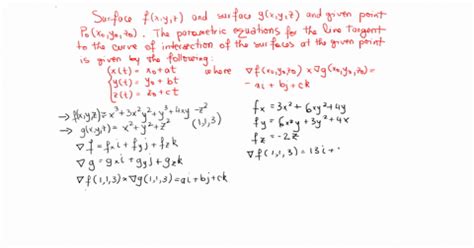 Surface f(x,y,z) and surface g(x,y,z) and given point
P₀(x₀,y₀,z₀). The parametric equations for the line tangent
to the curve of intersection of the surfaces at the given point
is given by the following:
{ x(t) = x₀+at where ∇f(x₀,y₀,z₀)×∇g(x₀,y₀,z₀)=
y(t) = y₀+bt = ai+bj+ck
z(t) = z₀+ct
→ f(x,y,z)=x³+3x²y²+y³+4xy-z²
→ g(x,y,z)=x²+y²+z² (1,1,3)
∇f = fxi+fyj+fzk
∇g = gxi+gyj+gzk
∇f(1,1,3)×∇g(1,1,3)=ai+bj+ck
fx = 3x²+6xy²+4y
fy = 6x²y+3y²+4x
fz = -2z
∇f(1,1,3)=13i+